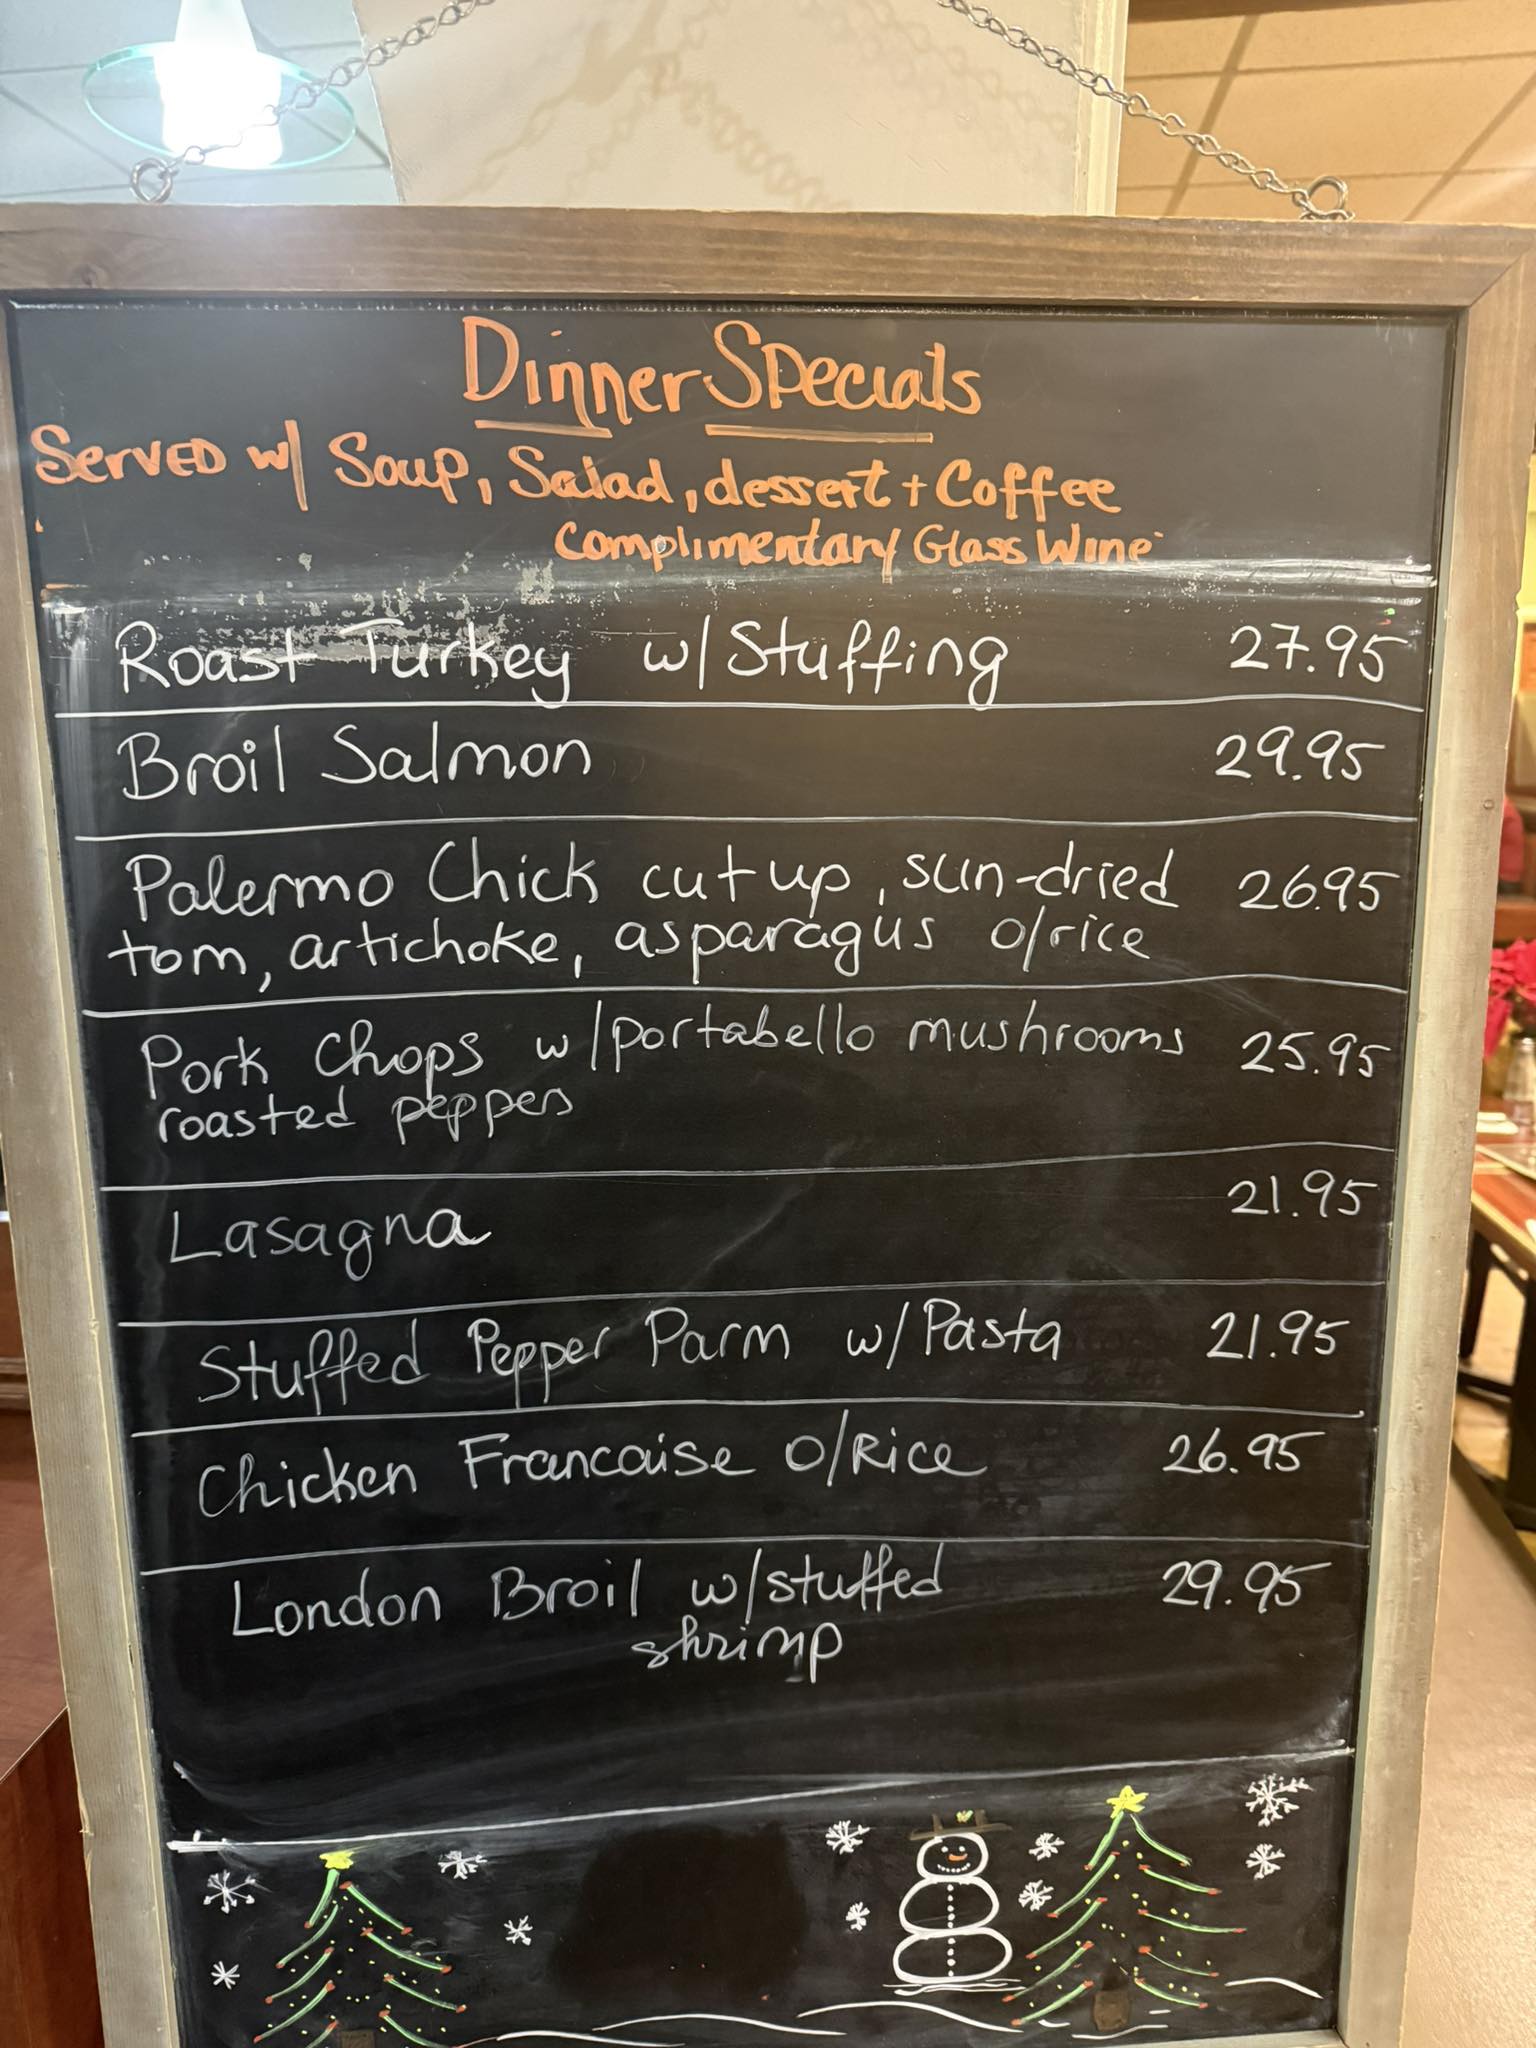 Dinner Specials
Served w/ Soup, Salad, dessert + Coffee
Complimentary Glass Wine
Roast Turkey w/ Stuffing 27.95
Broil Salmon 29.95
Palermo Chick cut up, sun-dried 26.95
tom, artichoke, asparagus o/rice
Pork Chops w/portabello mushrooms 25.95
roasted peppers
Lasagna 21.95
Stuffed Pepper Parm w/Pasta 21.95
Chicken Francaise o/Rice 26.95
London Broil w/stuffed 29.95
shrimp